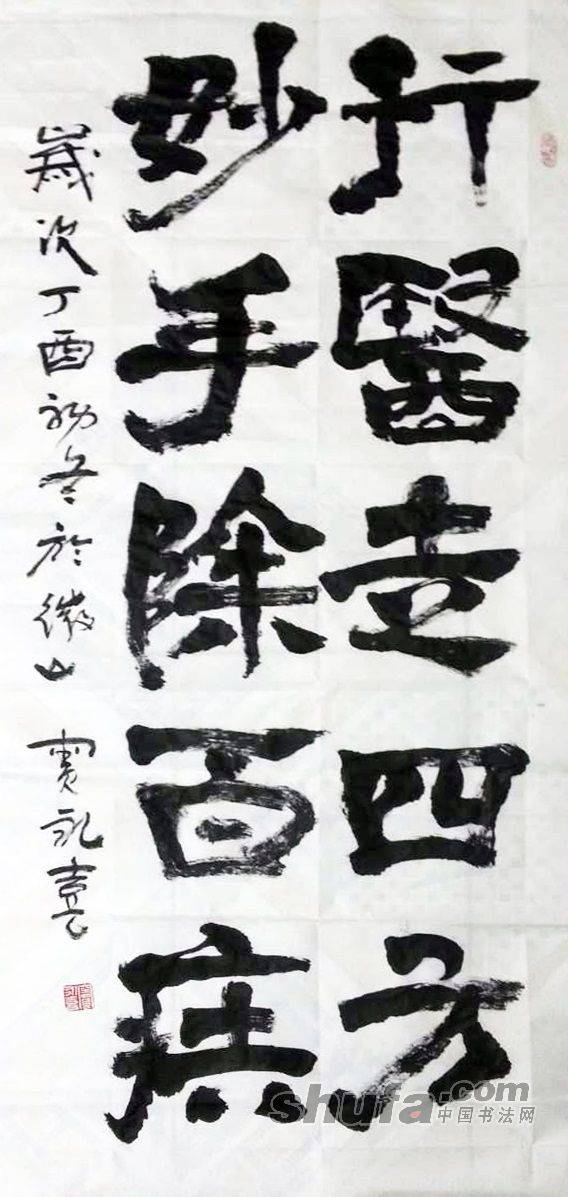 行醫走四方
妙手除百疾
歲次丁酉初冬於微山 喜
shufa.com
中国书法网